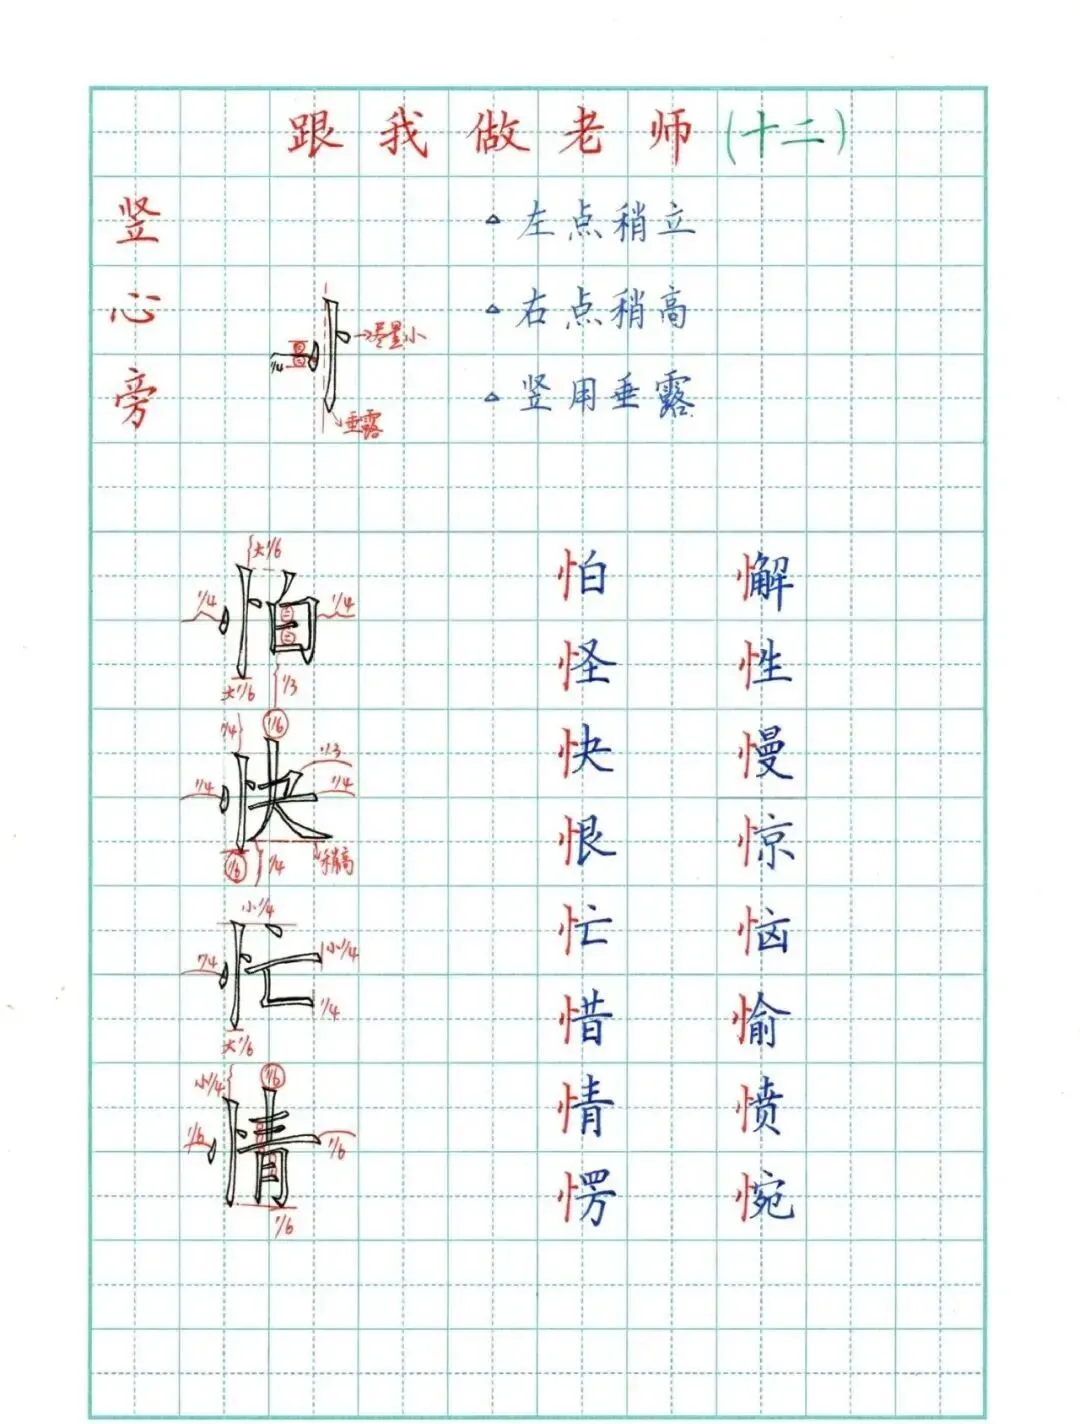 跟我做老师(十二)
竖心旁
▵左点稍立
▵右点稍高
▵竖用垂露
1/4
尽量小
垂露
大1/6
怕
1/4
1/4
大1/6
1/3
1/4
1/6
快
1/3
1/4
1/4
1/6
1/4
稍高
小1/4
忙
1/4
小1/4
1/4
大1/6
小1/4
1/6
情
1/6
1/6
1/6
怕 懈
怪 性
快 慢
恨 惊
忙 恼
惜 愉
情 愤
愣 惋